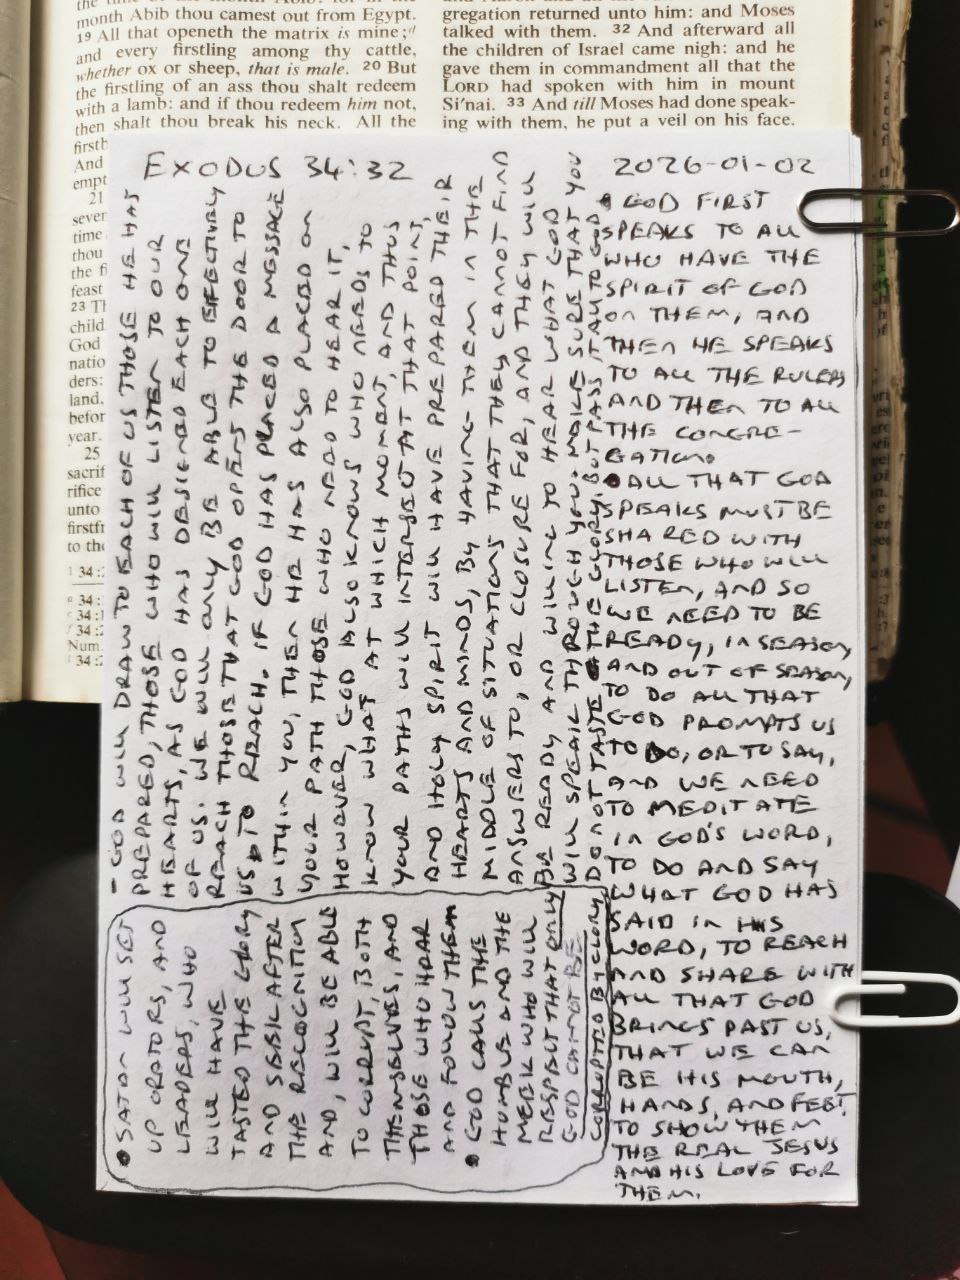 month Abib thou camest out from Egypt.
19 All that openeth the matrix is mine;
and every firstling among thy cattle,
whether ox or sheep, that is male. 20 But
the firstling of an ass thou shalt redeem
with a lamb: and if thou redeem him not,
then shalt thou break his neck. All the
firstb
And
empt
21
sever
time
thou
the fi
feast
23 Th
child
God
natio
ders:
land.
befor
year.
25
sacrif
rifice
unto
firstfr
to the
1 34:
34:
34:
34:2
Num.
34:
gregation returned unto him: and Moses
talked with them. 32 And afterward all
the children of Israel came nigh: and he
gave them in commandment all that the
LORD had spoken with him in mount
Si'nai. 33 And till Moses had done speak-
ing with them, he put a veil on his face.
EXODUS 34:32
2026-01-02
• GOD FIRST
SPEAKS TO ALL
WHO HAVE THE
SPIRIT OF GOD
ON THEM, AND
THEN HE SPEAKS
TO ALL THE RULERS
AND THEN TO ALL
THE CONGRE-
GATION.
• ALL THAT GOD
SPEAKS MUST BE
SHARED WITH
THOSE WHO WILL
LISTEN, AND SO
WE NEED TO BE
READY, IN SEASON,
AND OUT OF SEASON,
TO DO ALL THAT
GOD PROMPTS US
TO DO, OR TO SAY,
AND WE NEED
TO MEDITATE
IN GOD'S WORD,
TO DO AND SAY
WHAT GOD HAS
SAID IN HIS
WORD, TO REACH
AND SHARE WITH
ALL THAT GOD
BRINGS PAST US,
THAT WE CAN
BE HIS MOUTH,
HANDS, AND FEET
TO SHOW THEM
THE REAL JESUS
AND HIS LOVE FOR
THEM.
- GOD WILL DRAW TO EACH OF US THOSE HE HAS
PREPARED, THOSE WHO WILL LISTEN TO OUR
HEARTS, AS GOD HAS DESIGNED EACH ONE
OF US. WE WILL ONLY BE ABLE TO EFFECTIVELY
REACH THOSE THAT GOD OPENS THE DOOR TO
US TO REACH. IF GOD HAS PLACED A MESSAGE
WITHIN YOU, THEN HE HAS ALSO PLACED ON
YOUR PATH THOSE WHO NEED TO HEAR IT,
HOWEVER, GOD ALSO KNOWS WHO NEEDS TO
KNOW WHAT AT WHICH MOMENT, AND THUS
YOUR PATHS WILL INTERSECT AT THAT POINT,
AND HOLY SPIRIT WILL HAVE PREPARED THEIR
HEARTS AND MINDS, BY HAVING THEM IN THE
MIDDLE OF SITUATIONS THAT THEY CANNOT FIND
ANSWERS TO, OR CLOSURE FOR, AND THEY WILL
BE READY AND WILLING TO HEAR WHAT GOD
WILL SPEAK THROUGH YOU. MAKE SURE THAT YOU
DO NOT TASTE THE GLORY, BUT PASS IT ALL TO GOD.
• SATAN WILL SET
UP ORATORS, AND
LEADERS, WHO
WILL HAVE
TASTED THE GLORY
AND SEEK AFTER
THE RECOGNITION
AND, WILL BE ABLE
TO CORRUPT, BOTH
THEMSELVES, AND
THOSE WHO HEAR
AND FOLLOW THEM
• GOD CALLS THE
HUMBLE AND THE
MEEK WHO WILL
RESPECT THAT ONLY
GOD CANNOT BE
CORRUPTED BY GLORY.